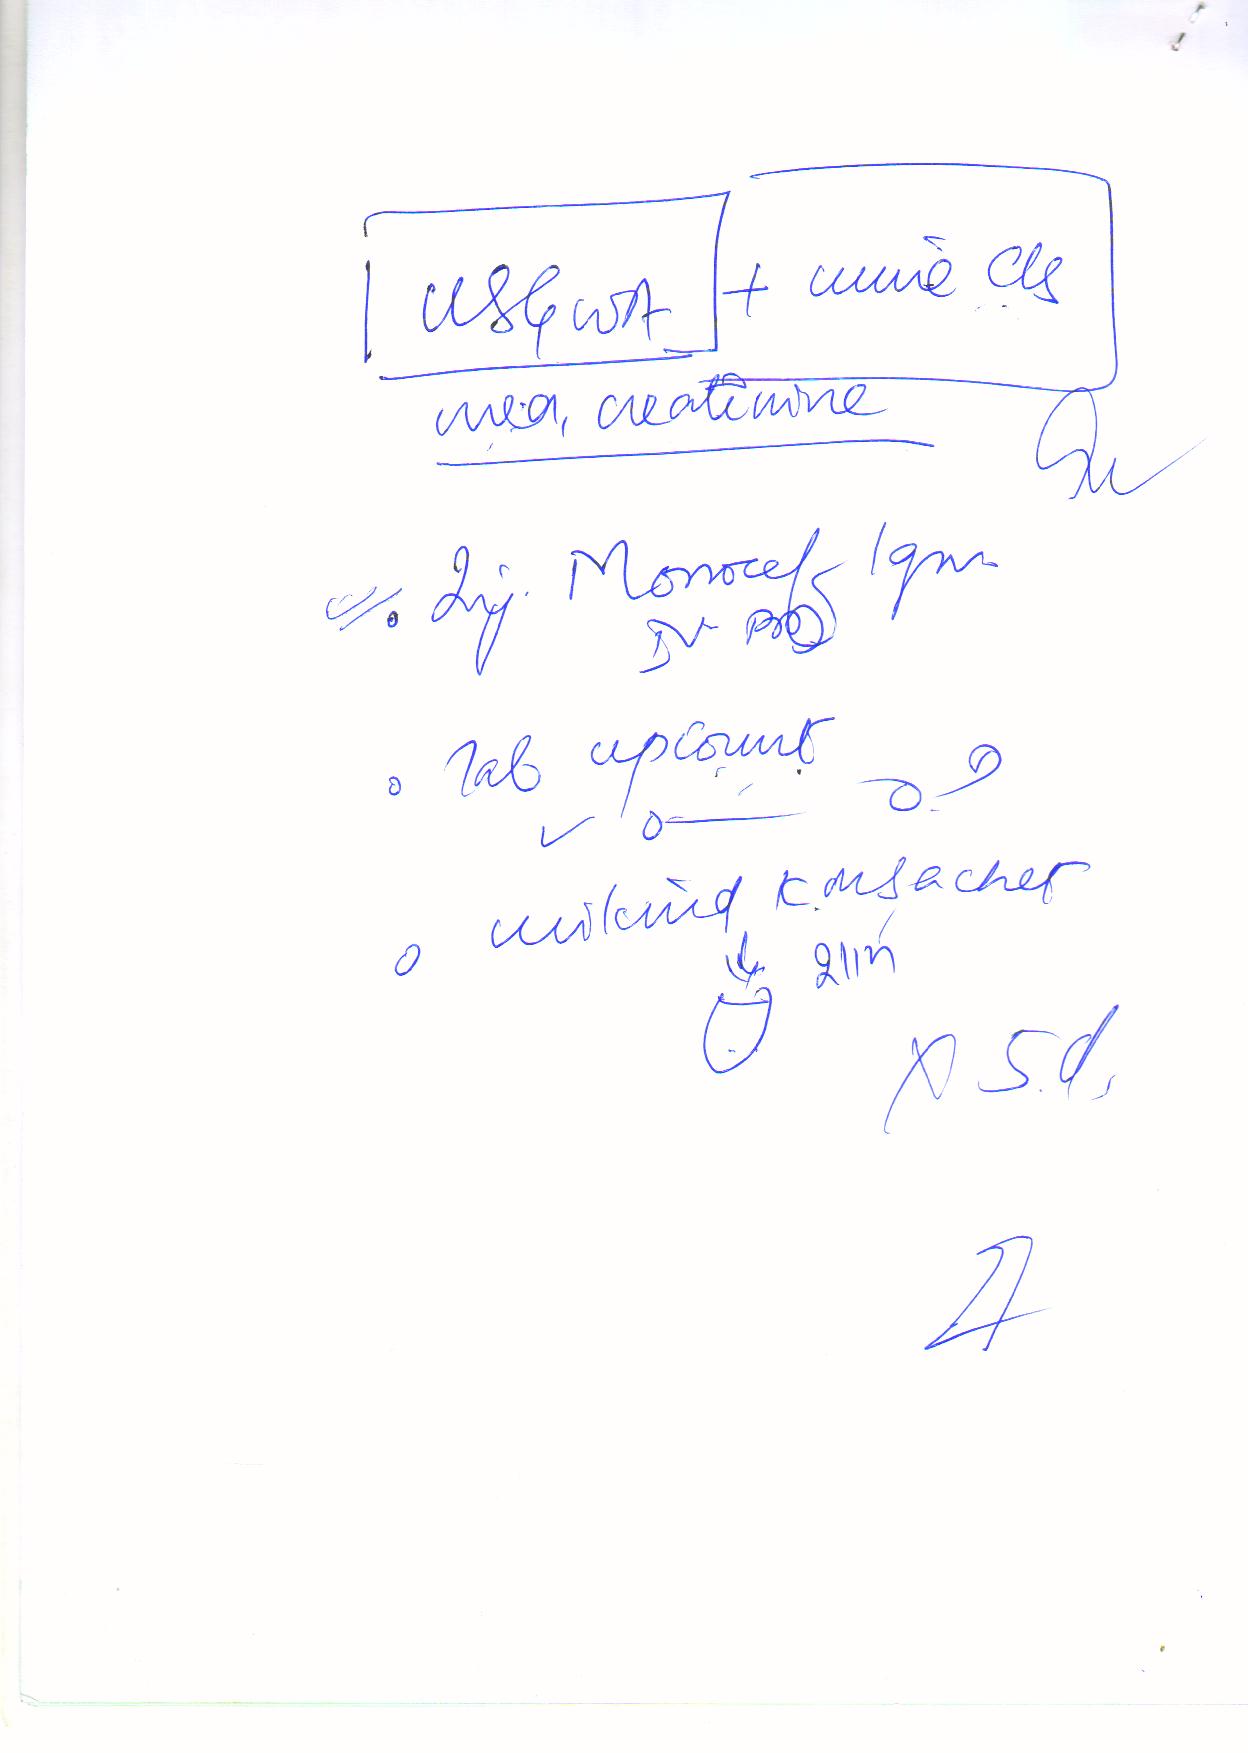 USG WA + urine C/s
urea, creatinine
Inj. Monocef 1gm
IV BD
Tab upcount
o——
urikind K.M sachet
x 5.d.